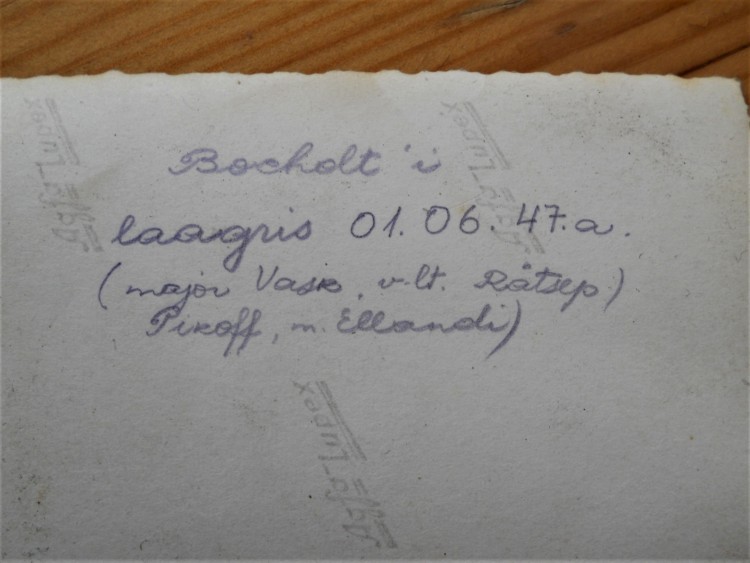 Bocholt'i
laagris 01. 06. 47.a.
(major Vask, v-lt. Rätsep)
Pikoff, n. Ellandi)
Agfa-Lupex
Agfa-Lupex
Agfa-Lupex